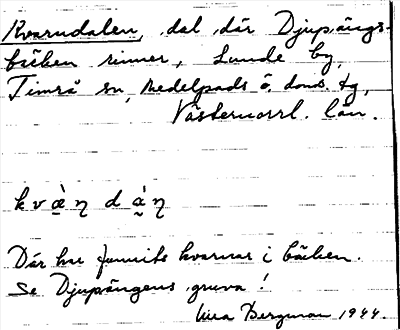 Kvarndalen, dal där Djupängs-
bäcken rinner, Lunde by,
Timrå sn, Medelpads ö. doms. tg,
Västernorrl. län.
kvὰ̱ŋ dά̱ŋ
Där har funnits kvarnar i bäcken.
Se Djupängens gruva!
Bergman 1944.